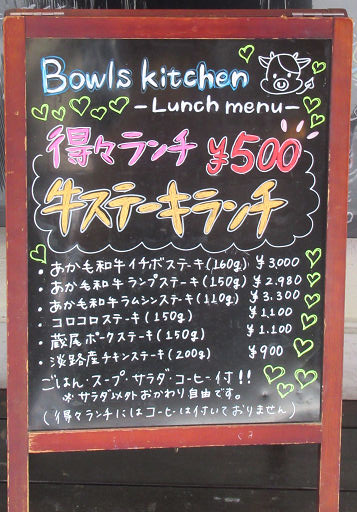 Bowls kitchen
-Lunch menu-
得々ランチ ¥500
牛ステーキランチ
・あか毛和牛イチボステーキ(160g) ¥3,000
・あか毛和牛ランプステーキ(150g) ¥2.980
・あか毛和牛ラムシンステーキ(110g) ¥3.300
・コロコロステーキ(150g) ¥1,100
・蔵尾ポークステーキ(150g) ¥1.100
・淡路産チキンステーキ(200g) ¥900
ごはん・スープ・サラダ・コーヒー付!!
※サラダ以外おかわり自由です。
(得々ランチにはコーヒーは付いておりません)